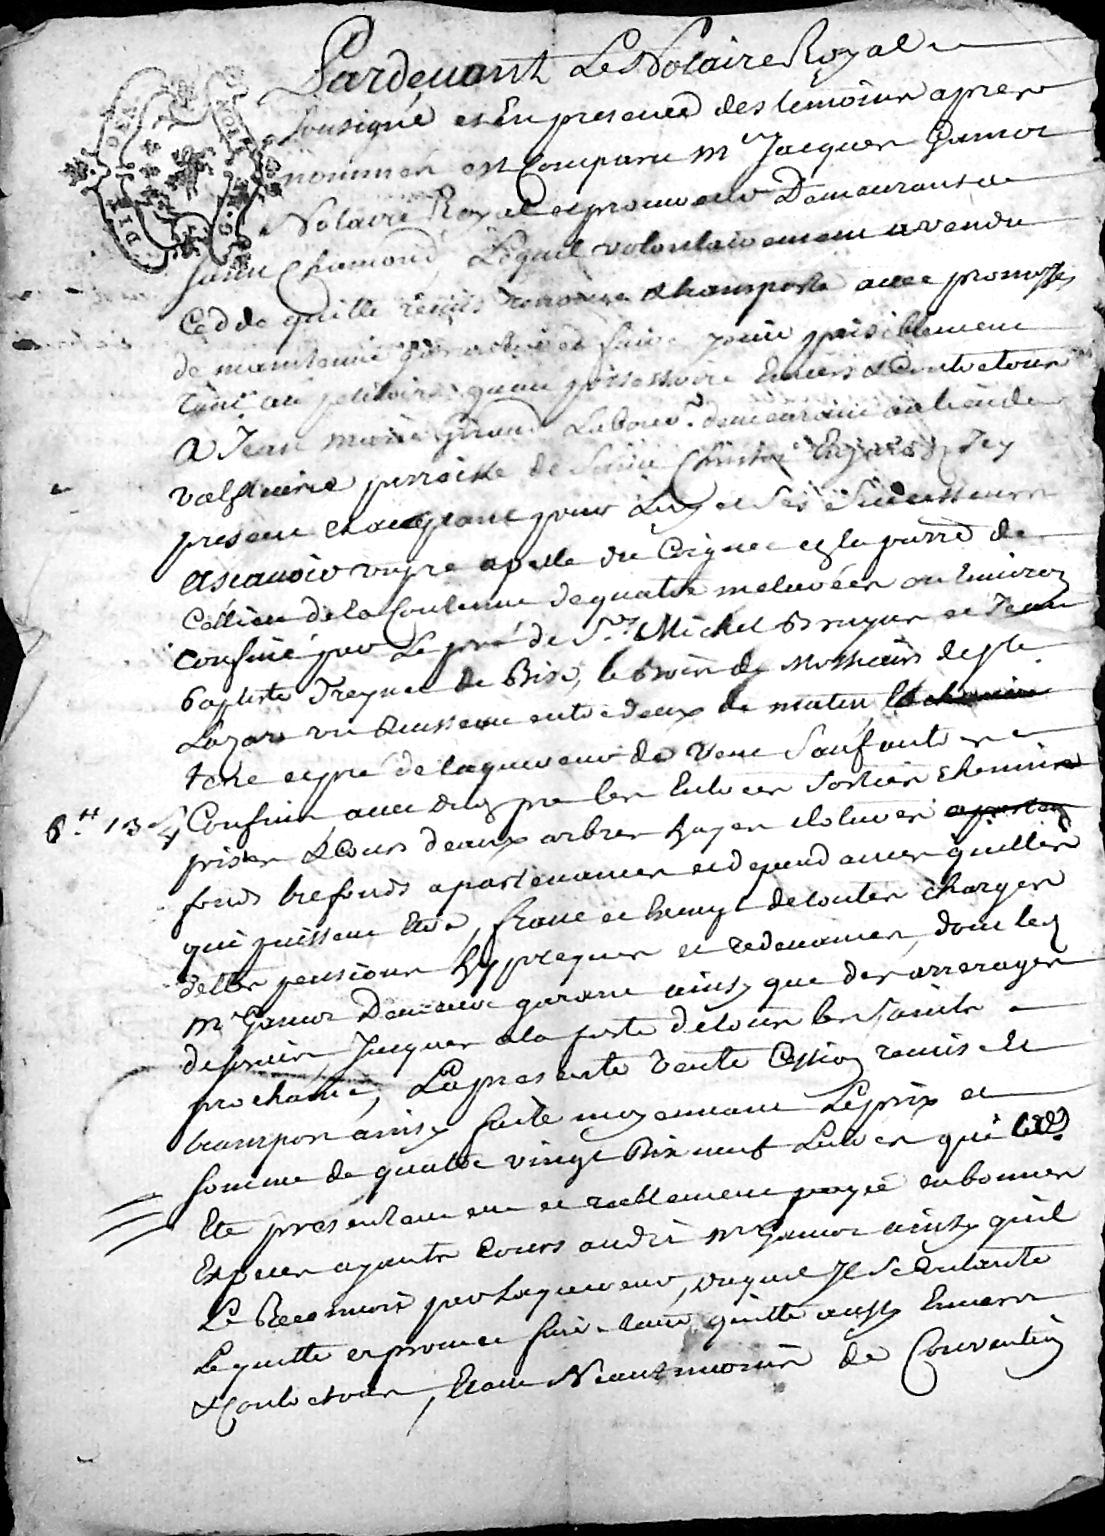 Pardeuant Le Notaire Royal
sousigné et En presence des temoins apres
nommes est Comparu Mr Jacques Gamot
Notaire Royal et procureur Demeurant a
saint Chamond, Lequel volontairement a vendu
Cedde quitte remis et transporte avec promesse
de maintenir garantir et faire jouir paisiblement
tant au petitoire quau possessoire Enuers & Contre tous
A Jean Marie Laboure. demeurant au lieu de
valfleurie parroisse de Saint Christo Icy
present et acceptant pour Luy et Ses Successeurs
Ascauoir un pre apelle du Coignet et la purre de
de la Contenue de quatre meteurées ou Enuiron
Confiné par Le pré de Sr Michel Bruyas et Jean
Baptiste de Bise, le Bois de Messieurs de St
Lazare un Ruisseau entre deux de matin le chemin
terre et pré de laquereur de Vent Sauf autres
6.# 13 s
Confins auec Ses Entrees Sorties chemins
prises & Cours deaux arbres hayes clotures
fonds trefonds apartenances et dependances quelles
qui puissent Etre, franc et Exempt de toutes charges
dettes pensions hyppoteques et redeuances, dont led
Mr Gamot Demeure garant ainsy que des arrerages
Jusques a la feste de tous les Saints
prochaine, La presente Vente Cession remise et
transport ainsy faite moyennant Le prix et
somme de quatre vingt Dix neuf Liures qui
Ete presentement et reellement payée en bonnes
Especes ayants Cours audit Mr Gamot ainsy quil
Le Reconnoit par Laquereur, duquel Il Se Contente
Le quitte et promet faire tenir quitte aussy Enuers
& Contre tous, Etant Neantmoins de Convention